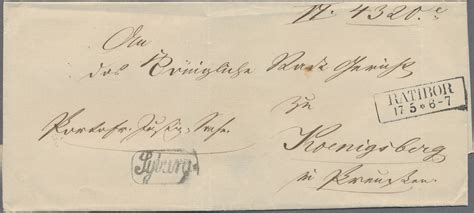 N. 4320.
An
das Königliche Stadt Gericht
zu
RATIBOR
17 5 * 6-7
Portofr. Justiz Sache
Koenigsberg
in Preussen